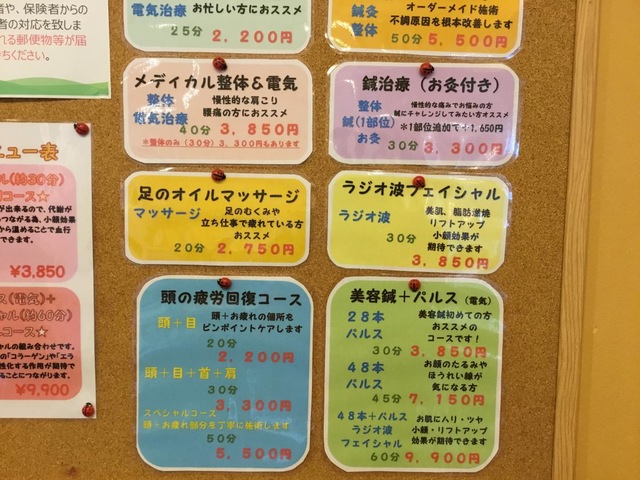 者や、保険者からの
者の対応を致しま
れる郵便物等が届
待ちください。
電気治療
お忙しい方におススメ
25分 2,200円
鍼灸
整体
オーダーメイド施術
不調原因を根本改善します
50分 5,500円
メディカル整体&電気
整体
電気治療
慢性的な肩こり
腰痛の方におススメ
40分 3,850円
*整体のみ(30分)3,300円もあります
鍼治療(お灸付き)
整体
鍼(1部位)
お灸
慢性的な痛みでお悩みの方
鍼にチャレンジしてみたい方オススメ
*1部位追加で+1,650
30分 3,300円
足のオイルマッサージ
マッサージ
足のむくみや
立ち仕事で疲れている方
おススメ
20分 2,750円
ラジオ波フェイシャル
ラジオ波
美肌、脂肪燃焼
リフトアップ
小顔効果が
期待できます
30分
3,850円
頭の疲労回復コース
頭+目
頭+お疲れの個所を
ピンポイントケアします
20分
2,200円
頭+目+首+肩
30分
3,300円
スペシャルコース
頭+お疲れ部分を丁寧に施術します
50分
5,500円
美容鍼+パルス(電気)
28本
パルス
美容鍼初めての方
おススメの
コースです!
30分 3,850円
48本
パルス
お顔のたるみや
ほうれい線が
気になる方
45分 7,150円
48本+パルス
ラジオ波
フェイシャル
お肌にハリ・ツヤ
小顔・リフトアップ
効果が期待できます
60分 9,900円
ニュー表
ル(約30分)
コース☆
が出来るので、代謝が
つながる為、小顔効果
から温めることで血行
できます。
¥3,850
ス(電気)+
ャル(約60分)
コース☆
ルの組み合わせです。
の「コラーゲン」や「エラ
生化する作用が期待で
ることにつながります。
¥9,900